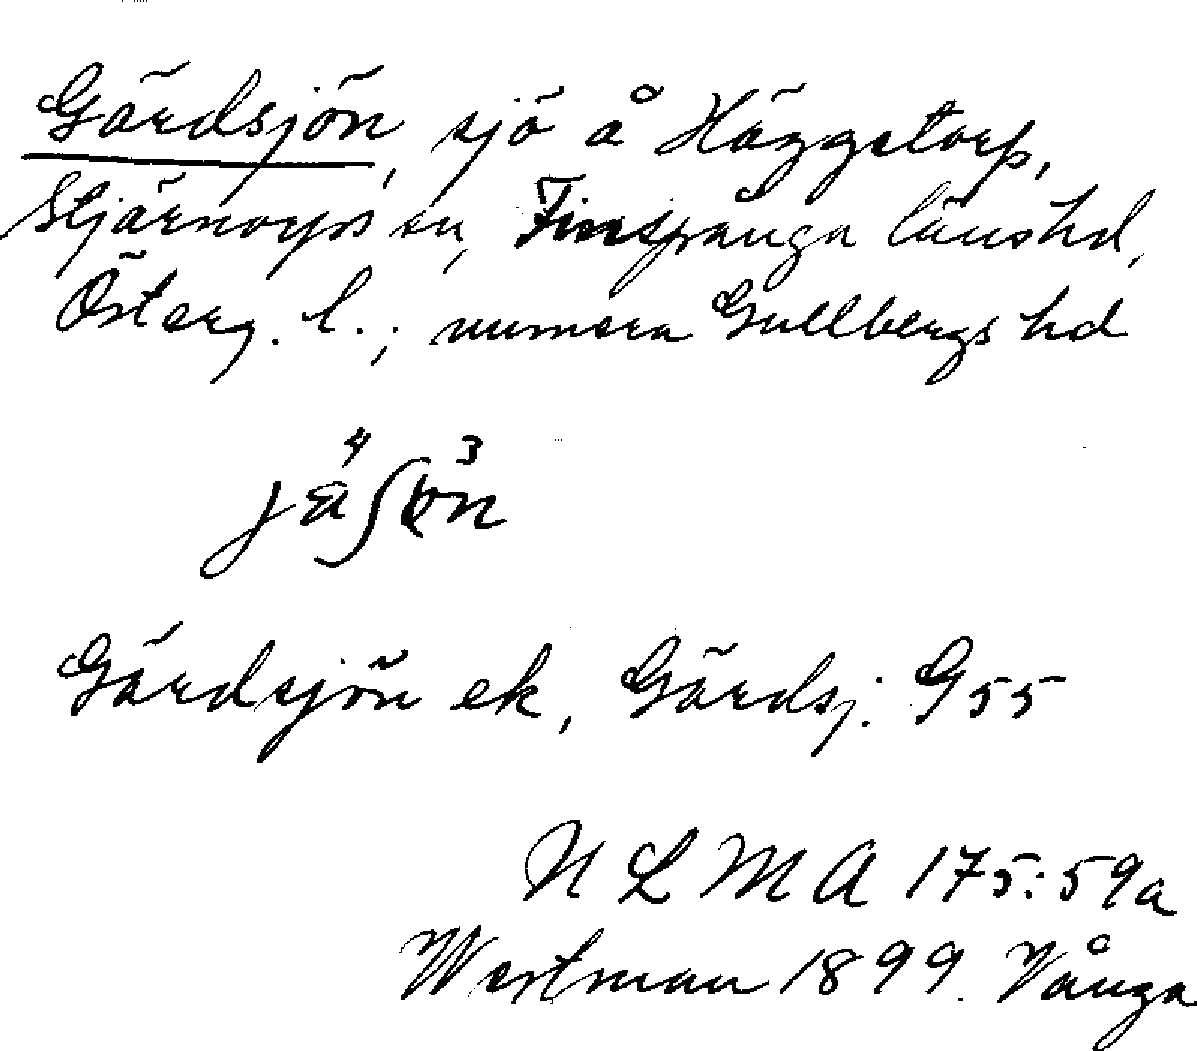 Gärdsjön, sjö å Häggetorp,
Stjärnorps sn, Finspånga länshd,
Österg. l.; numera Gullbergs hd
Gärdsjön ek, Gärdsj. G55
N L M A 175:59a
Westman 1899. Vånga